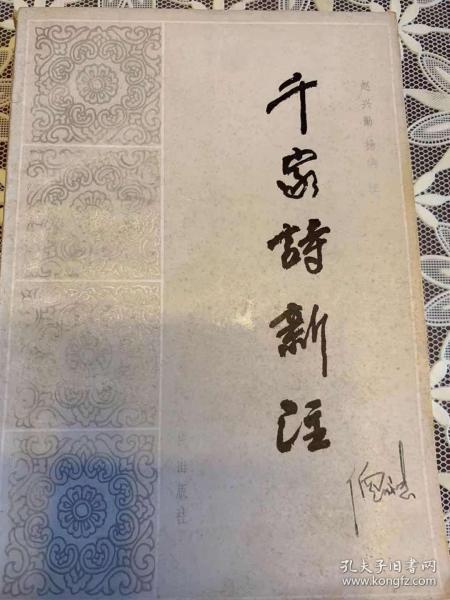 千家詩新注
赵兴勤
出版社
孔夫子旧书网
www.kongfz.com